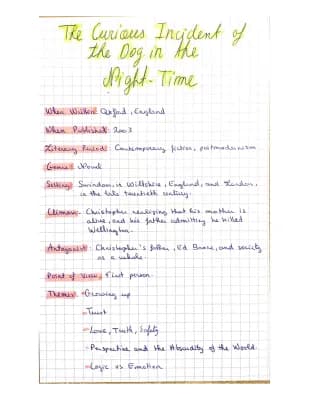 The Curious Incident of
the Dog in the
Night-Time
When Written: Oxford, England
When Published: 2003
Literary Period: Contemporary fiction, postmodernism
Genre: Novel
Setting: Swindon, in Wiltshire, England, and London,
in the late twentieth century.
Climax: Christopher realizing that his mother is
alive, and his father admitting he killed
Wellington.
Antagonist: Christopher's father, Ed Boone, and society
as a whole.
Point of View: First person.
Themes: - Growing up
- Trust
- Love, Truth, Safety
- Perspective and the Absurdity of the World.
- Logic vs Emotion